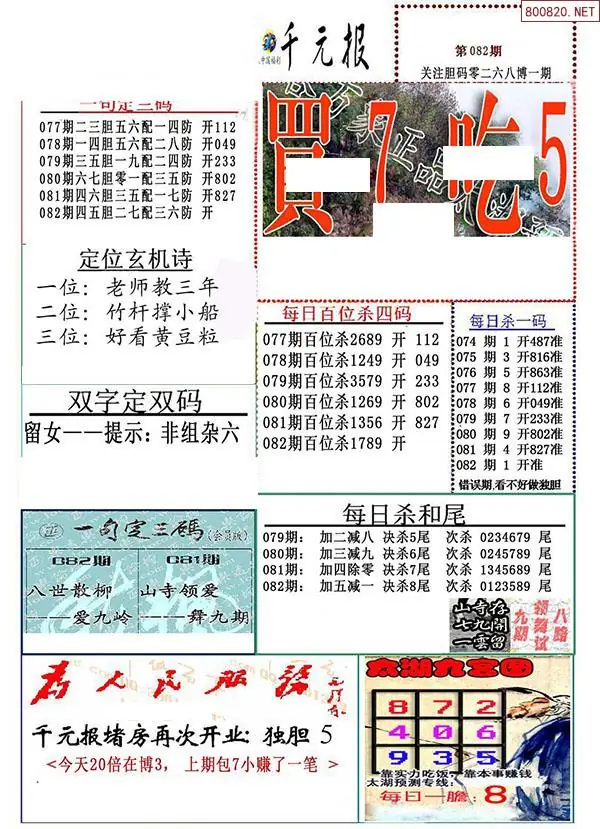 800820.NET
千元报
第082期
关注胆码零二六八博一期
一句定三码
077期二三胆五六配一四防 开112
078期一四胆五六配二八防 开049
079期三五胆一九配二四防 开233
080期六七胆零一配三五防 开802
081期四六胆三五配一七防 开827
082期四五胆二七配三六防 开
買7吃5
定位玄机诗
一位：老师教三年
二位：竹杆撑小船
三位：好看黄豆粒
每日百位杀四码
077期百位杀2689 开 112
078期百位杀1249 开 049
079期百位杀3579 开 233
080期百位杀1269 开 802
081期百位杀1356 开 827
082期百位杀1789 开
每日杀一码
074 期 1 开487准
075 期 3 开816准
076 期 5 开863准
077 期 8 开112准
078 期 6 开049准
079 期 7 开233准
080 期 9 开802准
081 期 4 开827准
082 期 1 开准
错误期,看不好做独胆
双字定双码
留女——提示：非组杂六
一句定三码(会员版)
082期 081期
八世散柳 山寺领爱
——爱九岭 ——舞九期
每日杀和尾
079期: 加二减八 决杀5尾 次杀 0234679 尾
080期: 加三减九 决杀6尾 次杀 0245789 尾
081期: 加四除零 决杀7尾 次杀 1345689 尾
082期: 加五减一 决杀8尾 次杀 0123589 尾
山寺存
七九開
一雲留
八路
领舞试
九期
为人民服务
千元报堵房再次开业: 独胆 5
<今天20倍在博3， 上期包7小赚了一笔 >
太湖九宫图
8 7 2
4 0 6
9 3 5
靠实力吃饭，靠本事赚钱
太湖预测专线:
每日一胆：8